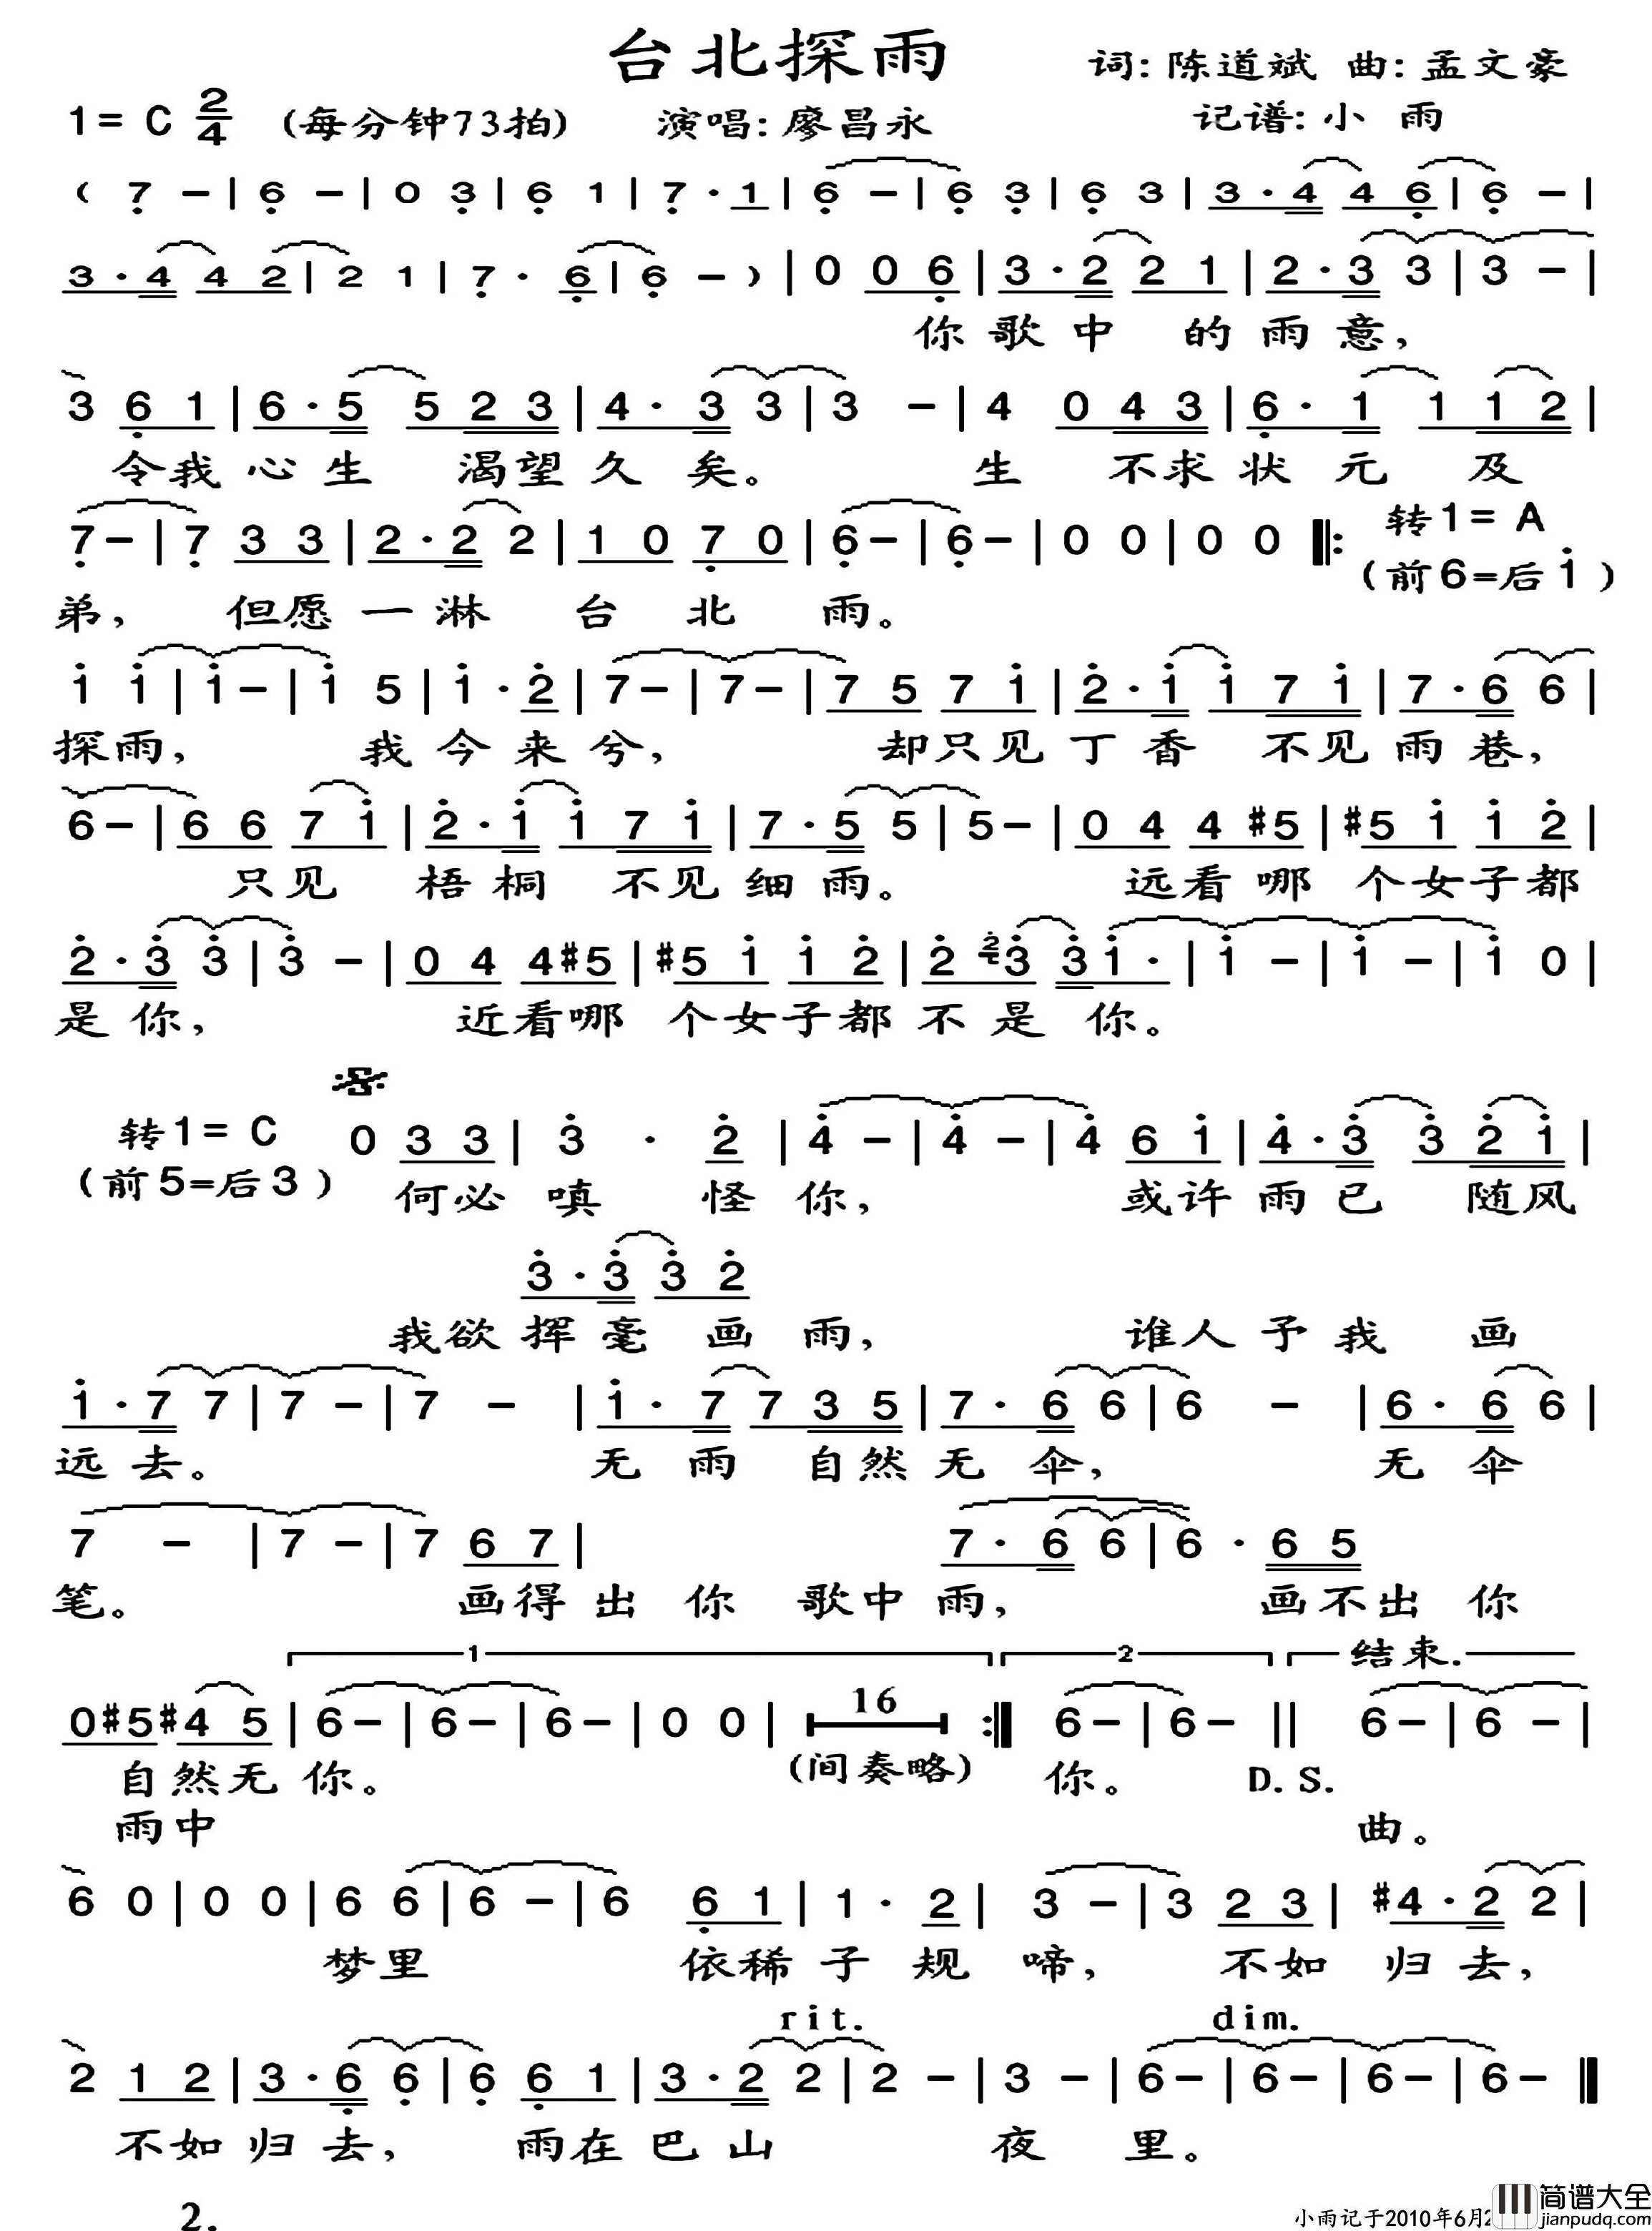 台北探雨
词: 陈道斌 曲: 孟文豪
1= C 2/4 (每分钟73拍) 演唱: 廖昌永 记谱: 小雨
( 7 – | 6 – | 0 3 | 6 1 | 7 · 1 | 6 – | 6 3 | 6 3 | 3 · 4 4 6 | 6 – |
3 · 4 4 2 | 2 1 | 7 · 6 | 6 – ) | 0 0 6 | 3 · 2 2 1 | 2 · 3 3 | 3 – |
你 歌 中 的 雨 意,
3 6 1 | 6 · 5 5 2 3 | 4 · 3 3 | 3 – | 4 0 4 3 | 6 · 1 1 1 2 |
令我 心 生 渴望 久 矣。 生 不求 状 元 及
7 – | 7 3 3 | 2 · 2 2 | 1 0 7 0 | 6 – | 6 – | 0 0 | 0 0 |: 转1= A
(前6=后i)
弟, 但愿 一 淋 台 北 雨。
i i | i – | i 5 | i · 2 | 7 – | 7 – | 7 5 7 i | 2 · i i 7 i | 7 · 6 6 |
探雨, 我 今 来 兮, 却只见 丁 香 不见 雨 巷,
6 – | 6 6 7 i | 2 · i i 7 i | 7 · 5 5 | 5 – | 0 4 4 #5 | #5 i i 2 |
只见 梧 桐 不见 细 雨。 远看哪 个女子都
2 · 3 3 | 3 – | 0 4 4 #5 | #5 i i 2 | 2 2 3 3 i · | i – | i – | i 0 |
是 你, 近看哪 个女子都 不 是 你。
转1= C 0 3 3 | 3 · 2 | 4 – | 4 – | 4 6 i | 4 · 3 3 2 i |
(前5=后3) 何必 嗔 怪 你, 或许 雨 已 随风
3 · 3 3 2
我欲 挥 毫 画 雨, 谁人 予 我 画
i · 7 7 | 7 – | 7 – | i · 7 7 3 5 | 7 · 6 6 | 6 – | 6 · 6 6 |
远 去。 无 雨 自然 无 伞, 无 伞
7 – | 7 – | 7 6 7 | 7 · 6 6 | 6 · 6 5
笔。 画得 出 你 歌中 雨, 画不 出 你
1 2 结束.
0 #5 #4 5 | 6 – | 6 – | 6 – | 0 0 | 16 :| 6 – | 6 – || 6 – | 6 – |
(间奏略)
自然无 你。 你。 D.S.
雨中 曲。
6 0 | 0 0 | 6 6 | 6 – | 6 6 1 | 1 · 2 | 3 – | 3 2 3 | #4 · 2 2 |
梦里 依稀 子 规 啼, 不如 归 去,
rit. dim.
2 1 2 | 3 · 6 6 | 6 6 1 | 3 · 2 2 | 2 – | 3 – | 6 – | 6 – | 6 – | 6 – ‖
不如 归 去, 雨在 巴 山 夜 里。
2.
小雨记于2010年6月2
简谱大全
jianpudq.com